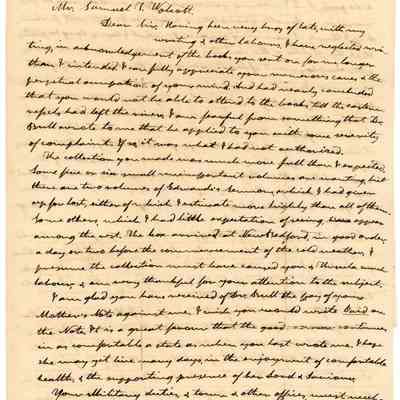 Mr. Samuel T. Wolcott
Dear Sir, Having been very busy of late, with my
writing & other labours, I have neglected wri-
ting, in acknowledgement of the books you sent on for me longer
than I intended. I can fully appreciate your numerous cares, & the
perpetual occupation of your mind. And had nearly concluded
that you would not be able to attend to the books, till the
vessels had left the rivers. I am fearful from something that Dr.
Brull wrote to me that he applied to you with some severity
of complaint. If so, it was what I had not authorized.
The collection you made was much more full than I expected.
Some five or six small & unimportant volumes are wanting, but
there are two volumes of Edwards's Sermons, which I had given
up for lost, either of which I estimate more highly than all of them.
Some others, which I had little expectation of seeing,
among the rest. The box arrived at New Bedford, in good order
a day or two before the commencement of the cold weather. I
presume the collection must have caused you & Ursula much
labour, & am very thankful for your attention to the subject.
I am glad you have received of Dr. Brull the pay of your
Mother's Note against me. I wish you would write Paid on
the Note. It is a great favour that the good continues
in as comfortable a state as when you last wrote me. I hope
she may yet live many days, in the enjoyment of comfortable
health, & the supporting presence of her Lord & Saviour.
Your Military duties, & town & other offices, must